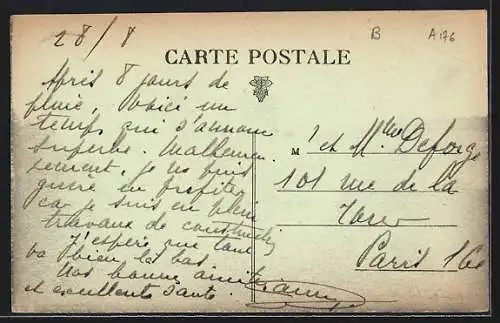 28/8
B
A 176
CARTE POSTALE
Après 8 jours de
pluie, voici un
temps qui s'annonce
superbe. Malheureu-
sement, je ne puis
guère en profiter
car je suis en plein
travaux de construction
J'espère que tout
va bien là bas
Nos bonne amitié
et excellente santé.
M
et Mlle Deforge
101 rue de la
Tour
Paris 16e